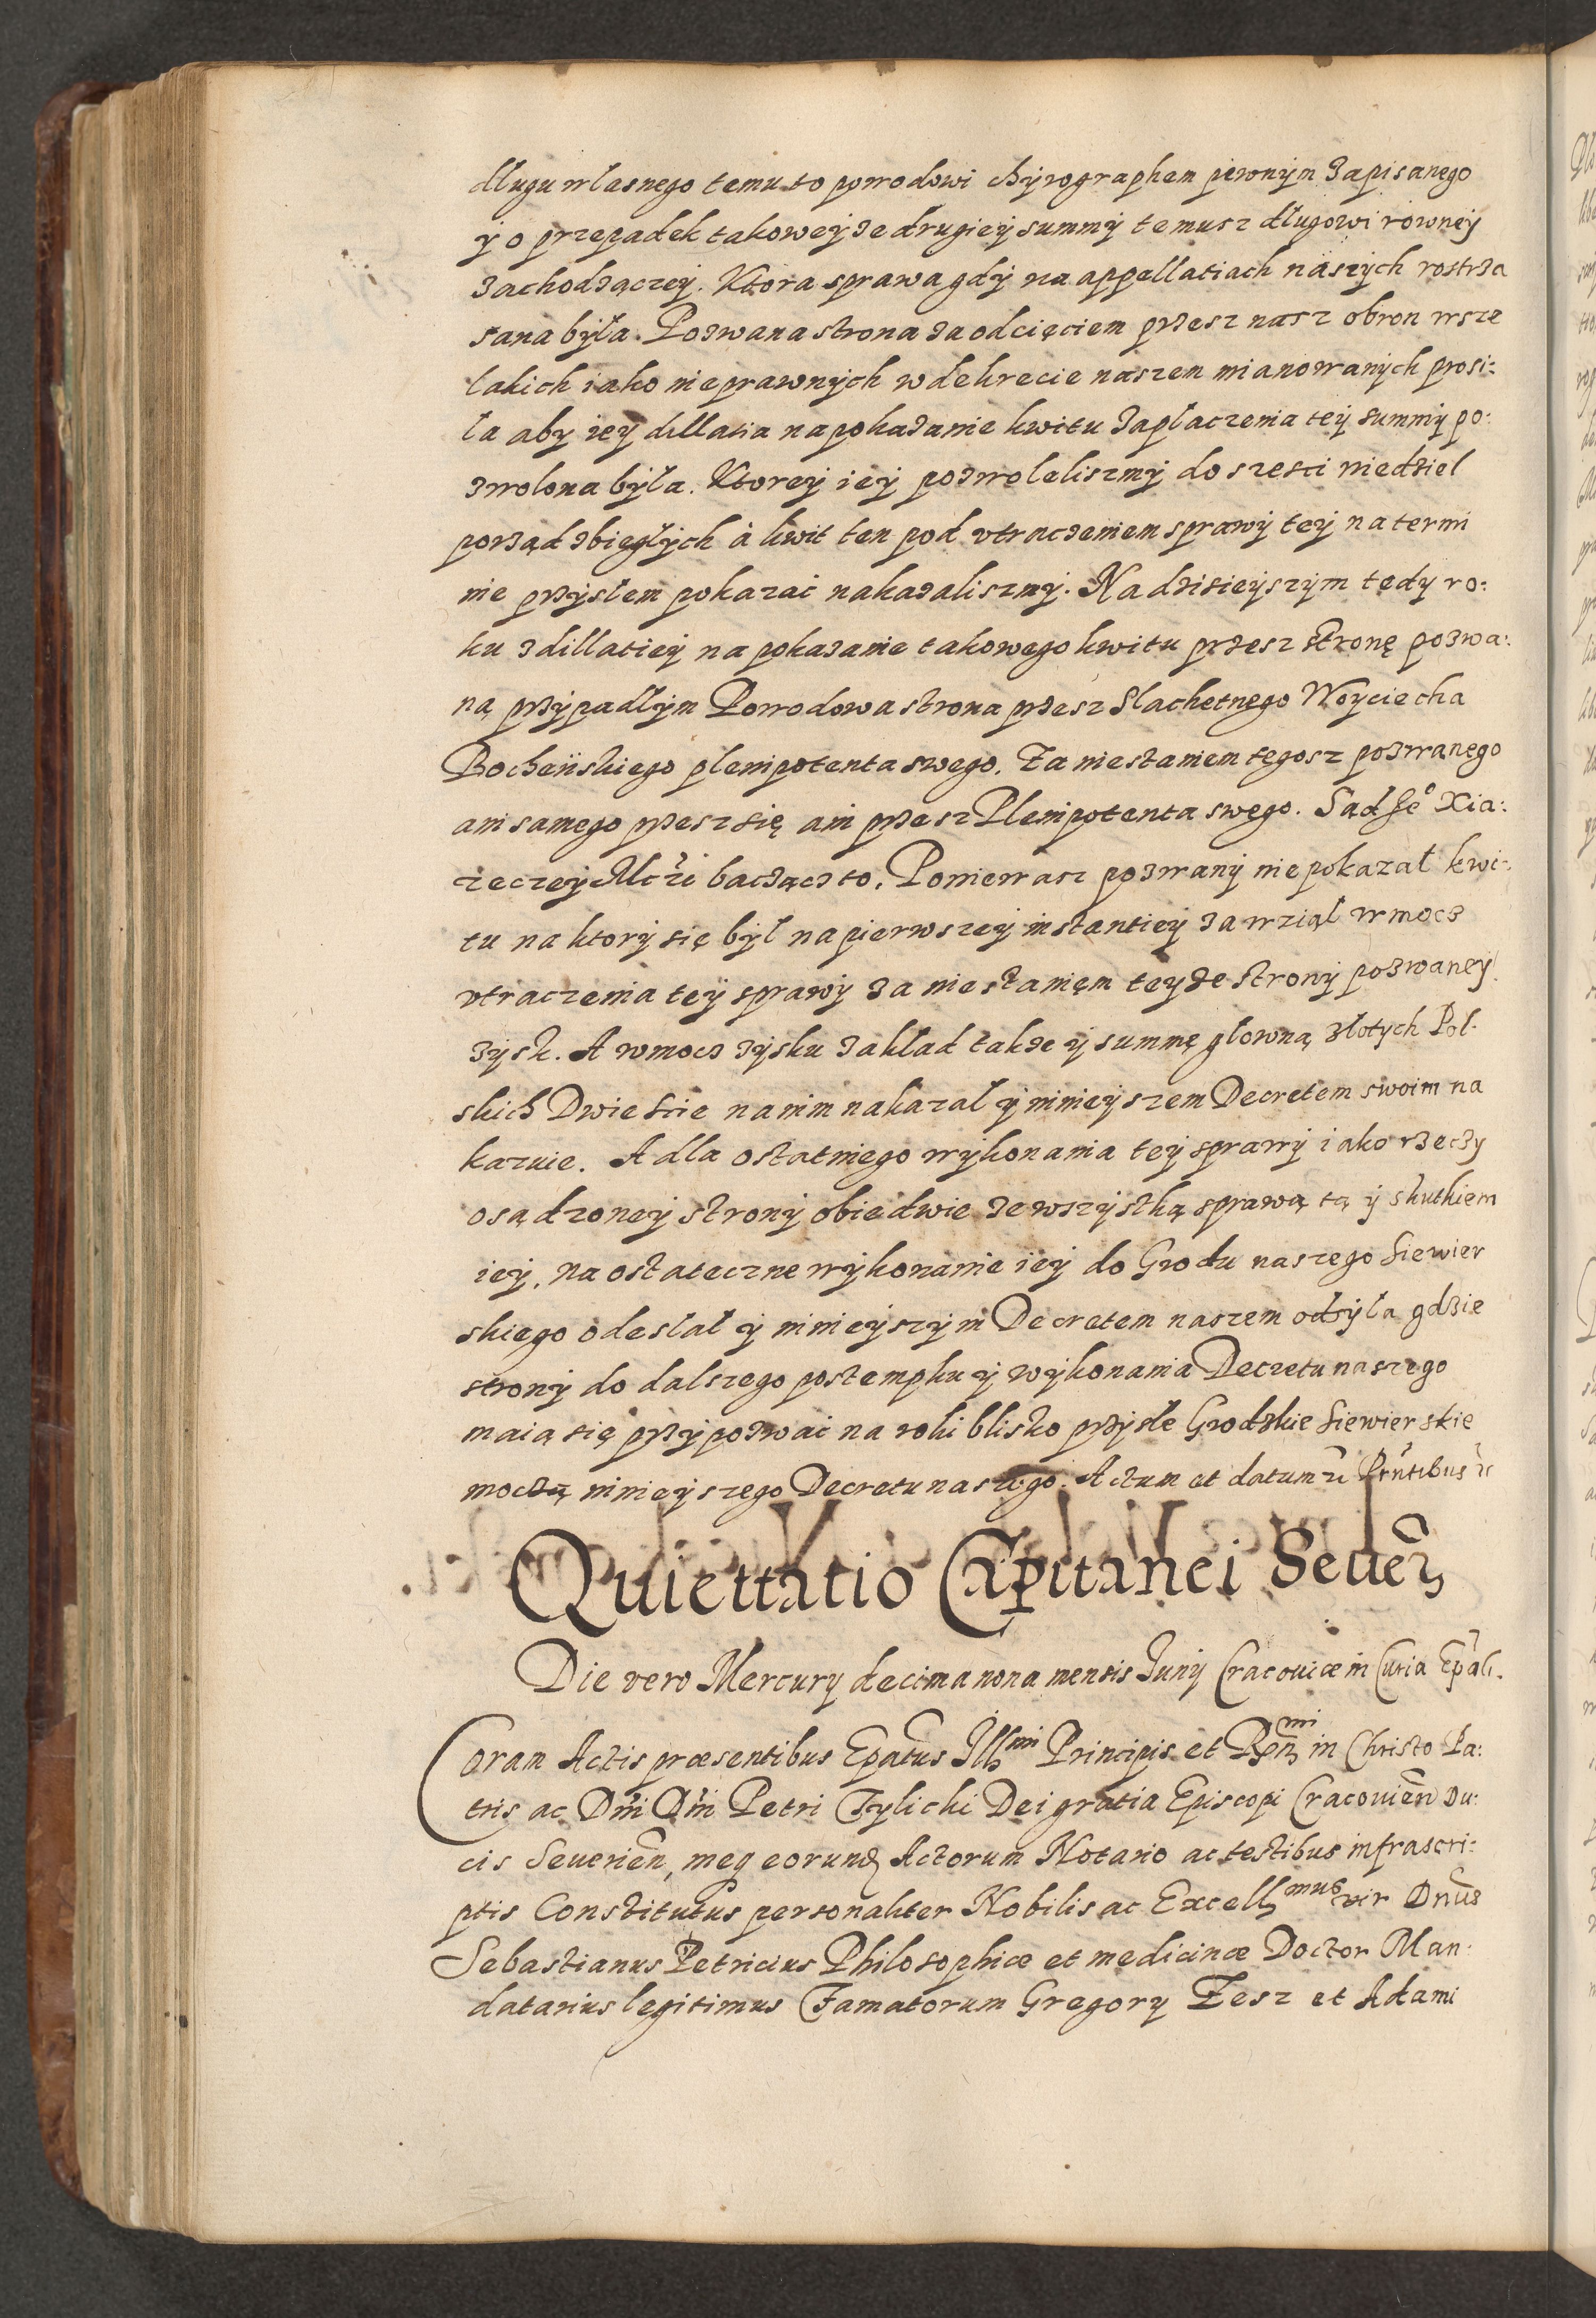 długu własnego temu to powodowi chyrographem pewnÿm zapisanego
y o przepadek takoweÿ ze drugieÿ summÿ temusz długowi rowneÿ
zachodząceÿ. Ktora sprawa gdÿ na appellatiach naszÿch rostrza
sana bÿła. Pozwana strona za odcięciem przesz nasz obron wsze
lakich iako nieprawnÿch w dekrecie naszem mianowanÿch prosi:
ła aby ieÿ dillatia na pokazanie kwitu zapłaczenia teÿ summÿ po:
zwolona bÿła. Ktoreÿ ieÿ pozwoleliszmÿ do szesci niedziel
porząd zbiegłÿch à kwit ten pod vtraczeniem sprawÿ teÿ na termi
nie przÿsłem pokazać nakazaliszmÿ. Na dzisieÿszÿm tedy ro:
ku z dillatieÿ na pokazanie takowego kwitu przesz stronę pozwa:
ną przÿpadłÿm Powodowa strona przesz Slachetnego Woÿciecha
Bocheńskiego plenipotenta swego. Za niestaniem tegosz pozwanego
ani samego przesz się ani przesz Plenipotenta swego. Sąd Je° Xia:
zeczeÿ Mczi bacząc to. Poniewasz pozwanÿ nie pokazał kwi:
tu na ktorÿ się bÿł na pierwszeÿ instantieÿ zawziął w mocz
vtraczenia teÿ sprawÿ za niestaniem teÿze stronÿ pozwaneÿ
zÿsk. A w mocz zÿsku zakład takze ÿ summę głowną złotych Pol:
skich Dwiescie na nim nakazał ÿ ninieÿszem Decretem swoim na
kazuie. A dla ostatniego wÿkonania teÿ sprawÿ iako rzeczÿ
osądzoneÿ stronÿ obiedwie ze wszÿstką sprawą tą ÿ skutkiem
ieÿ, na ostateczne wÿkonanie ieÿ do Grodu naszego Siewier
skiego odesłał ÿ ninieÿszÿm Decretem naszem odsÿła gdzie
stronÿ do dalszego postempku ÿ wÿkonania Decretu naszego
maią się przÿpozwać na roki blisko przÿsłe Grodzkie Siewierskie
moczą ninieÿszego Decretu naszego. Actum et datum ꝛc Pñtibus ꝛc
Quiettatio Capitanei Seueꝝ
Die vero Mercury decima nona mensis Juny Cracouiæ in Curia Epãli.
Coram Actis præsentibus Epãtus Illmi Principis et Rndmi in Christo Pa:
tris ac Dñi Dñi Petri Tylicki Dei gratia Episcopi Cracouieñ Du:
cis Seuerieñ, meqꝫ eorundꝫ Actorum Notario ac testibus infrascri:
ptis Constitutus personaliter Nobilis ac Excellmus vir Dñus
Sebastianus Petricius Philosophiæ et medicinæ Doctor Man:
datarius legitimus Famatorum Gregory Zesz et Adami